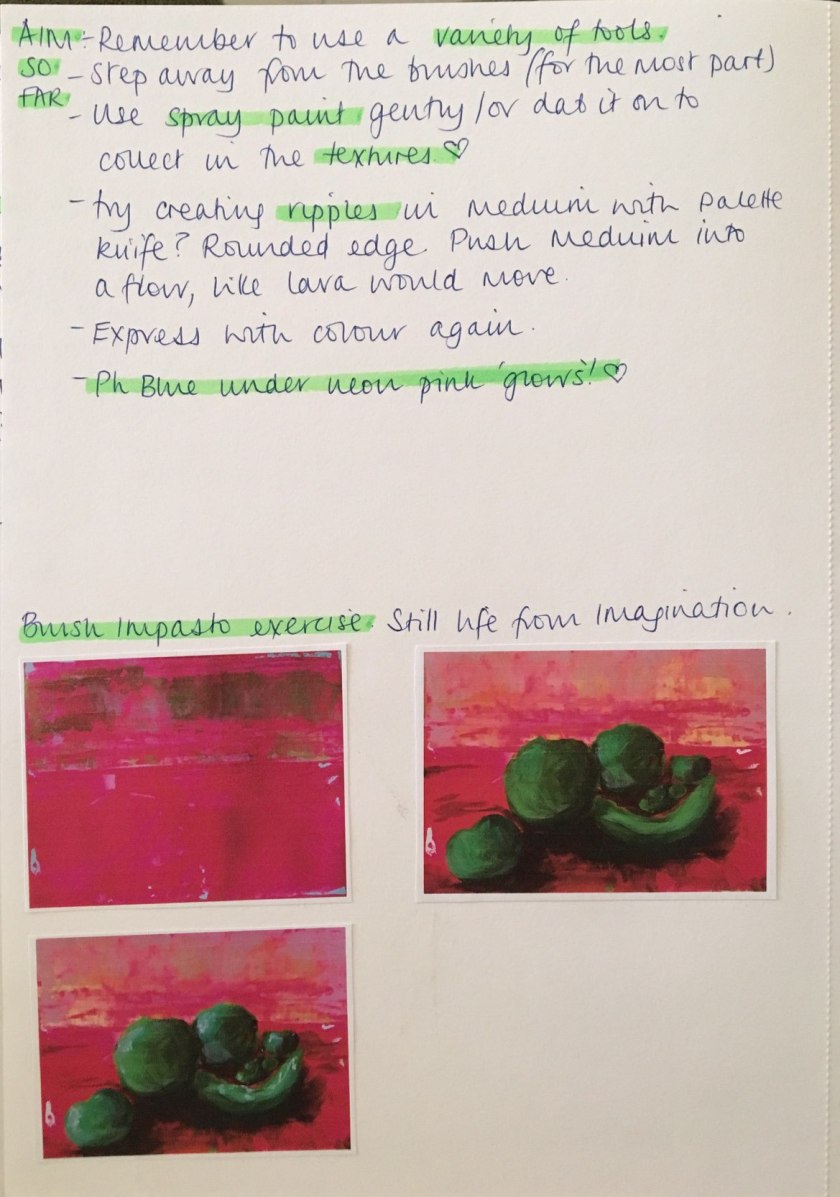 AIM:- Remember to use a variety of tools.
SO - Step away from the brushes (for the most part)
FAR
- Use spray paint gently/or dab it on to
collect in the textures ♡
- try creating ripples in meduim with palette
knife? Rounded edge. Push meduim into
a flow, like lava would move.
- Express with colour again.
- Ph Blue under neon pink 'glows'! ♡
Brush impasto exercise. Still life from imagination.